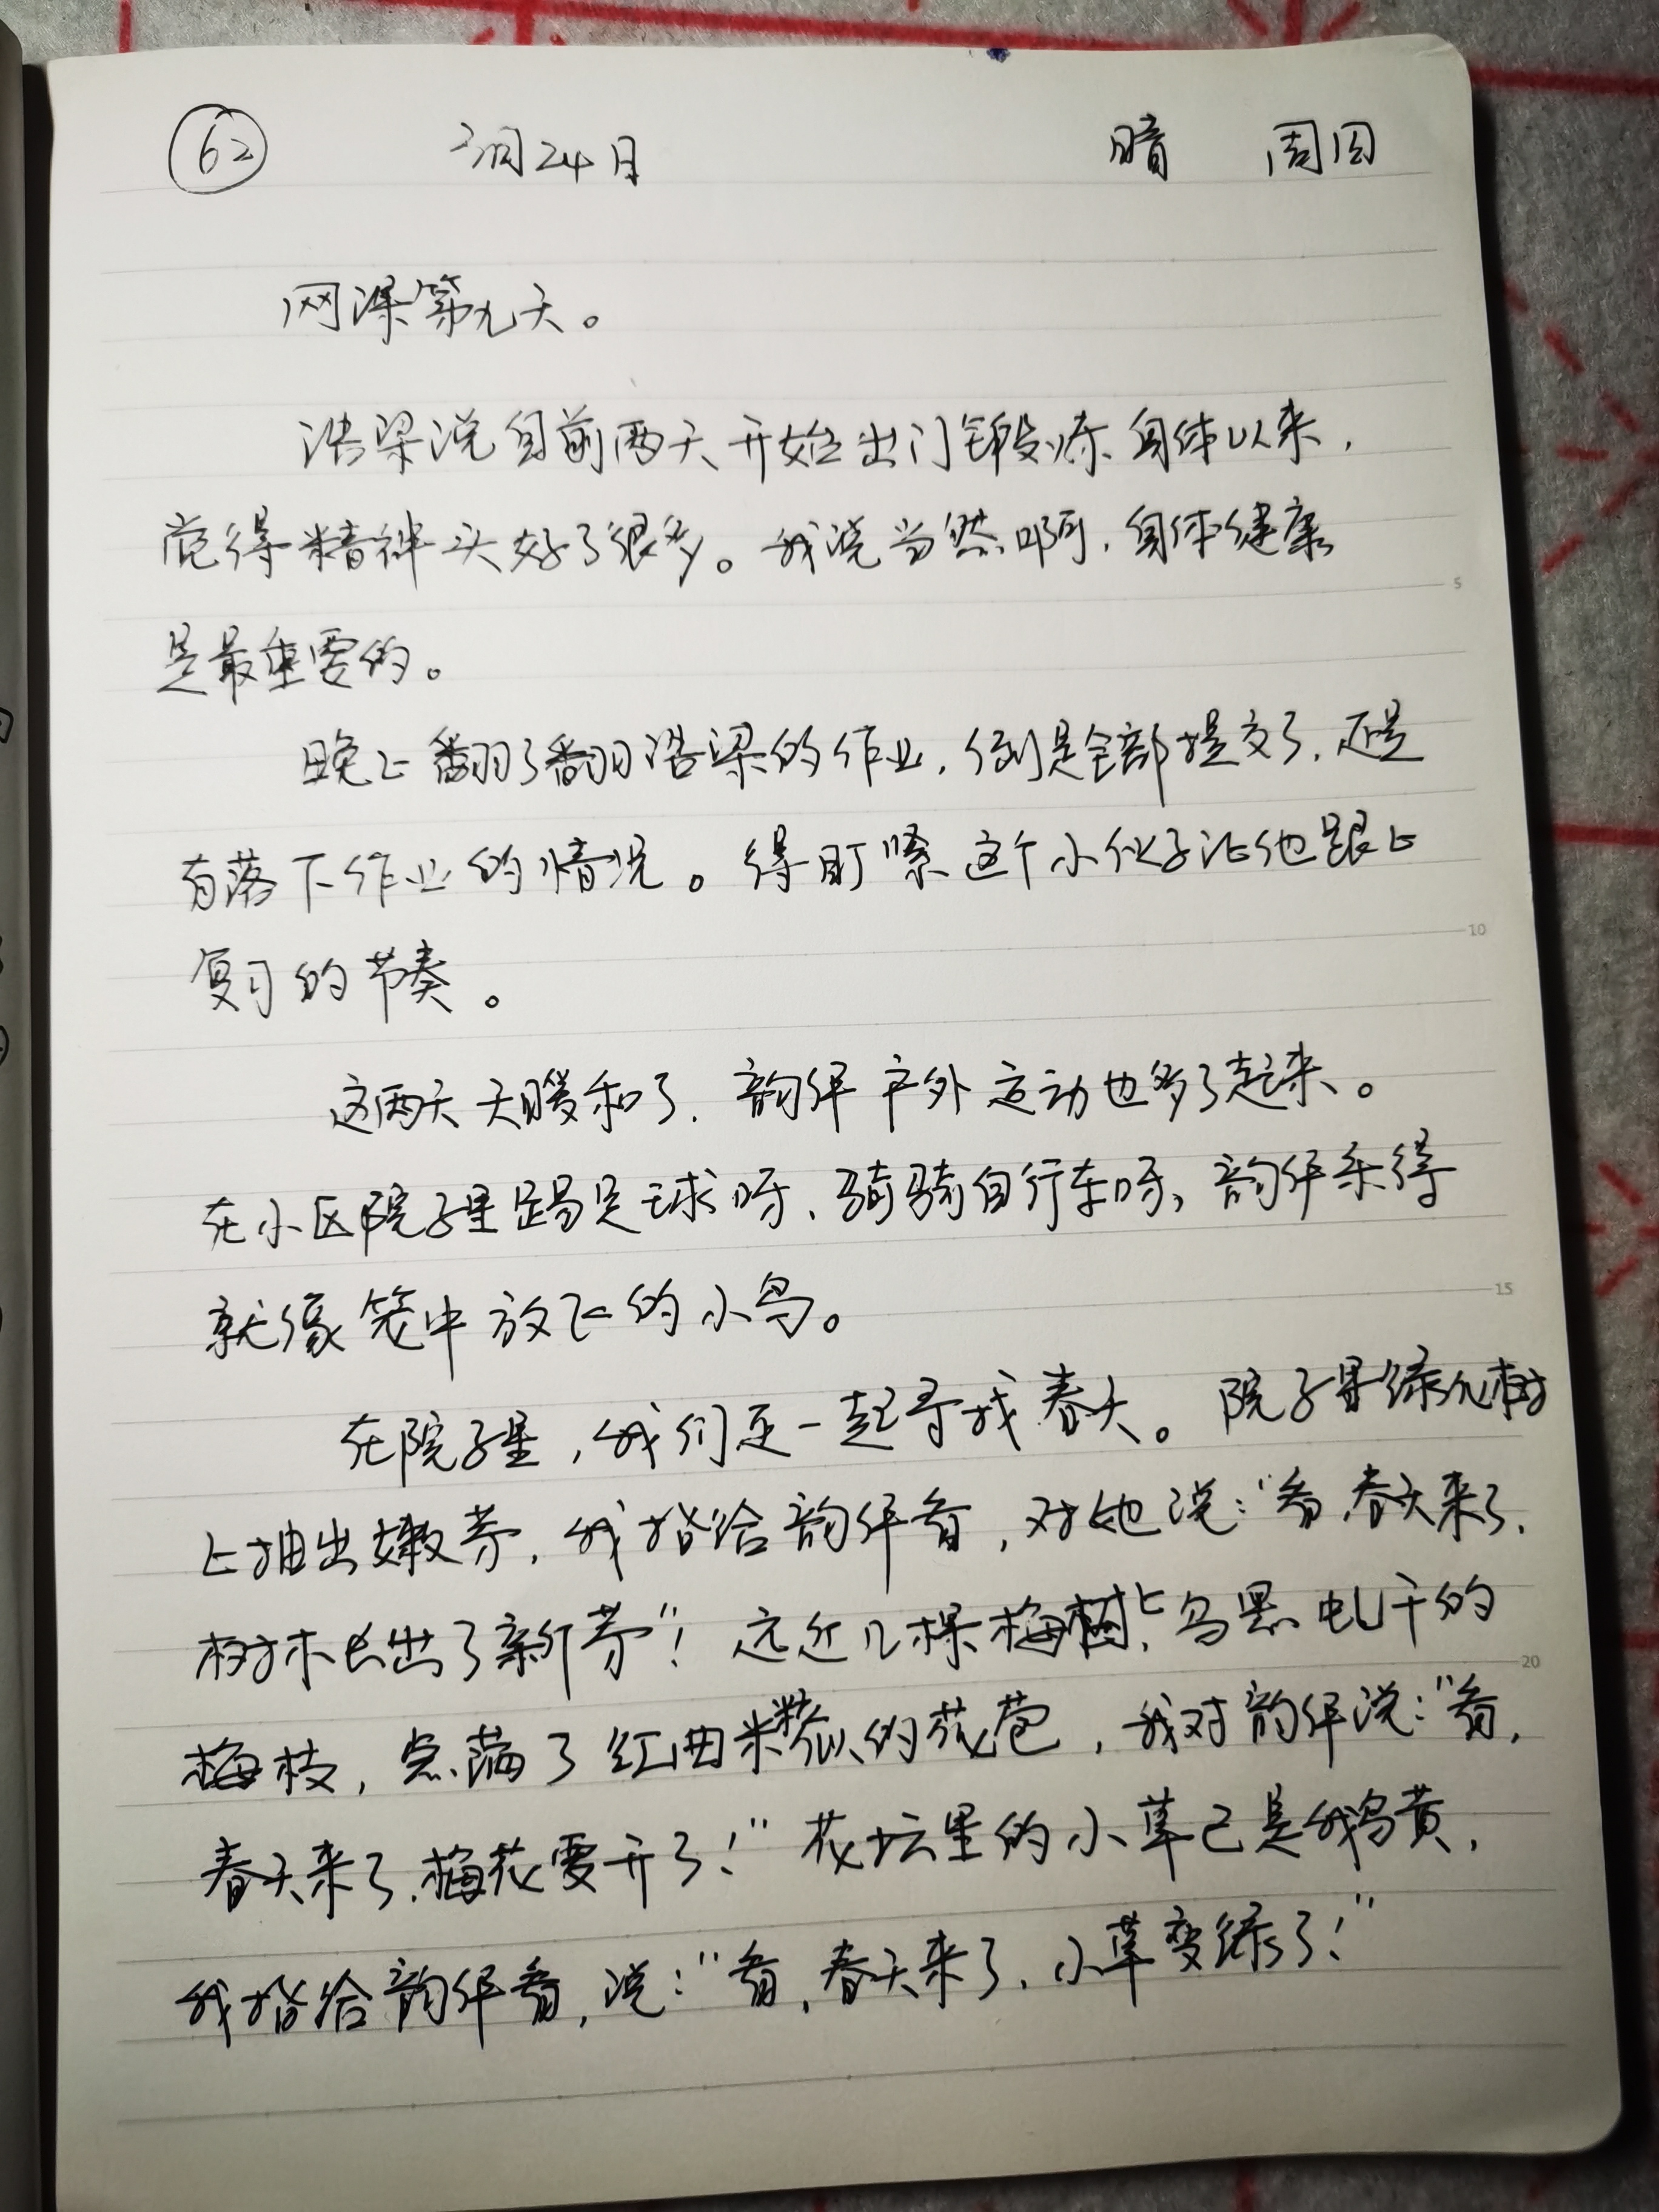 62 3月24日 晴 周四
网课第九天。
浩梁说自前两天开始出门锻炼身体以来，
觉得精神头好了很多。我说当然啊，身体健康
是最重要的。
晚上翻了翻浩梁的作业，倒是全部提交了，还是
有落下作业的情况。得盯紧这个小伙子让他跟上
复习的节奏。
这两天天暖和了，韵伊户外运动也多了起来。
在小区院子里踢足球呀、骑骑自行车呀，韵伊乐得
就像笼中放飞的小鸟。
在院子里，我们还一起寻找春天。院子里绿化树
上抽出嫩芽，我指给韵伊看，对她说：“看，春天来了，
树木长出了新芽”！远近几棵梅树上，乌黑虬干的
梅枝，点满了红曲米粒似的花苞，我对韵伊说：“看，
春天来了，梅花要开了！”花坛里的小草已是鹅黄，
我指给韵伊看，说：“看，春天来了，小草变绿了！”
5
10
15
20